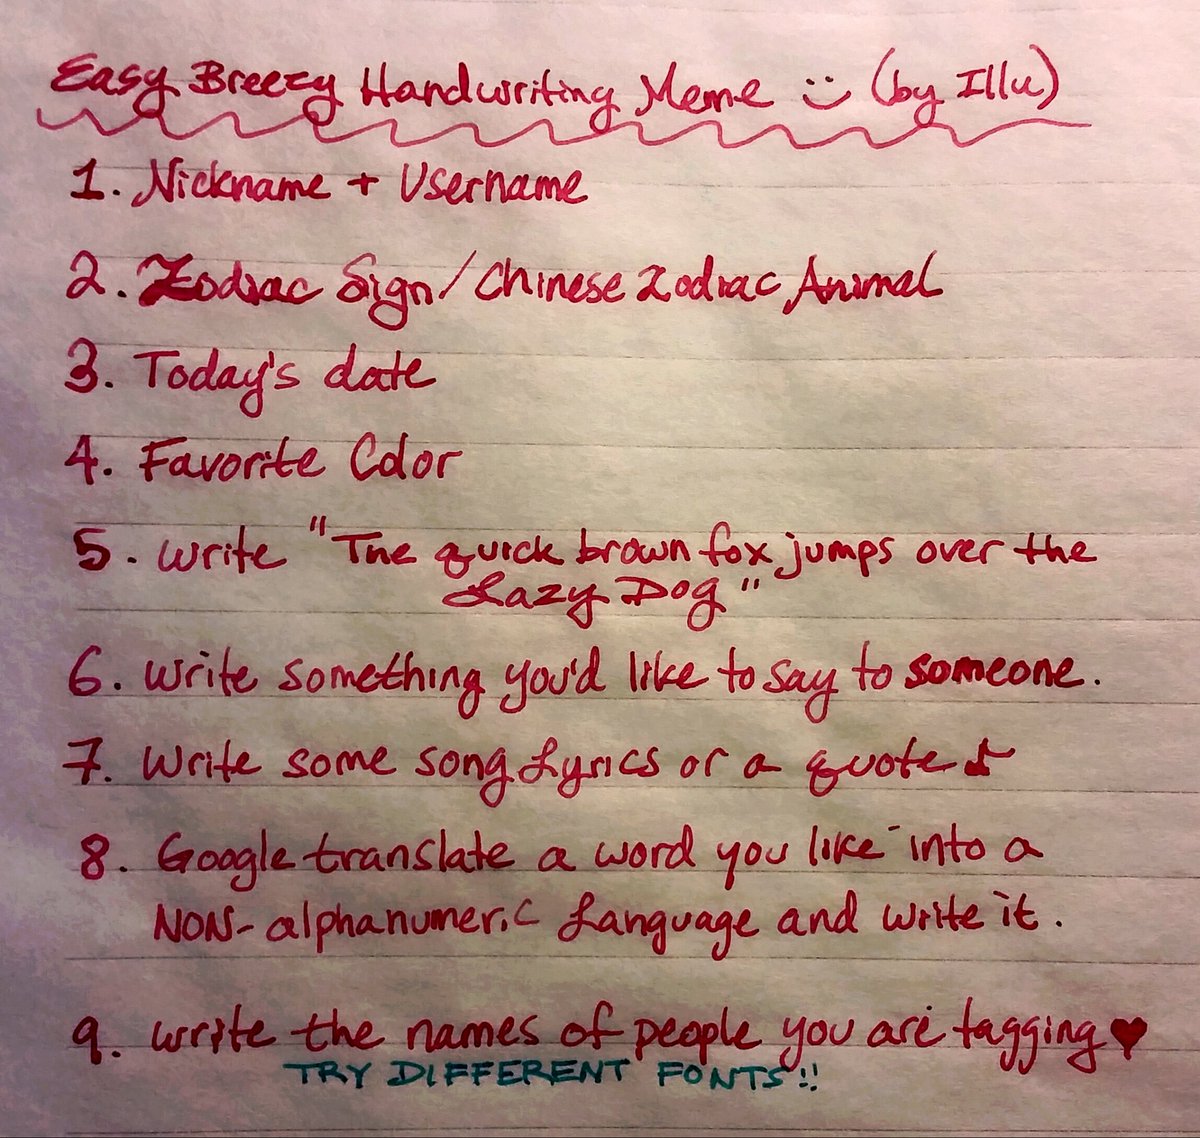 Easy Breezy Handwriting Meme :) (by Illu)
1. Nickname + Username
2. Zodiac Sign/Chinese Zodiac Animal
3. Today's date
4. Favorite Color
5. Write "The quick brown fox jumps over the
Lazy Dog"
6. Write something you'd like to say to someone.
7. Write some song Lyrics or a quote ♪
8. Google translate a word you like into a
NON-alphanumeric Language and write it.
9. Write the names of people you are tagging ♥
TRY DIFFERENT FONTS!!